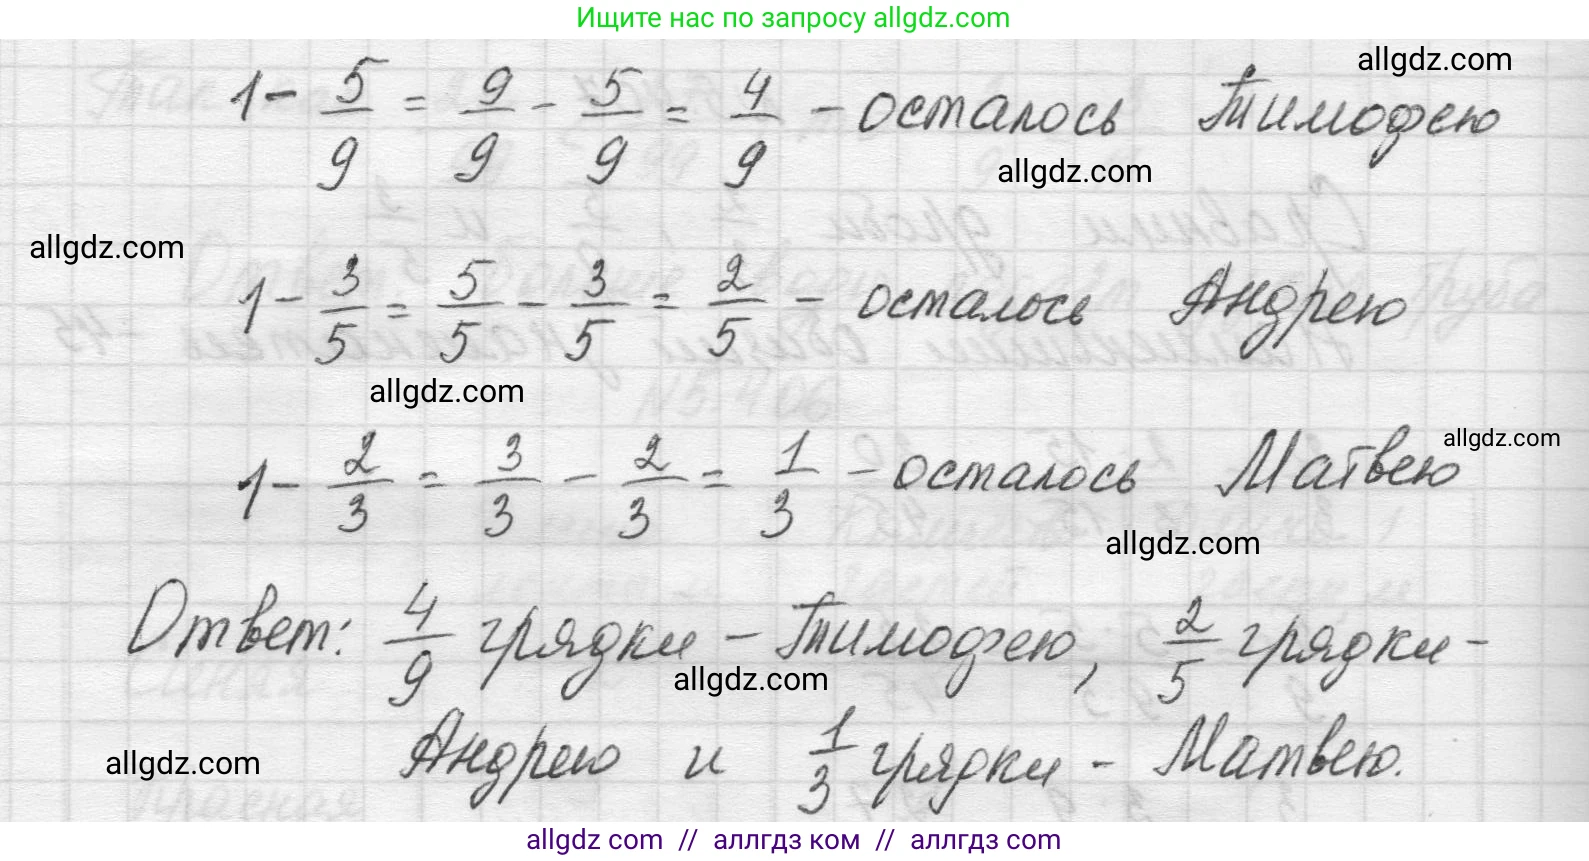 Ищите нас по запросу allgdz.com
allgdz.com
1 - 5/9 = 9/9 - 5/9 = 4/9 - осталось Тимофею
allgdz.com
allgdz.com
1 - 3/5 = 5/5 - 3/5 = 2/5 - осталось Андрею
allgdz.com
1 - 2/3 = 3/3 - 2/3 = 1/3 - осталось Матвею
allgdz.com
allgdz.com
Ответ: 4/9 грядки - Тимофею, 2/5 грядки -
allgdz.com
Андрею и 1/3 грядки - Матвею.
allgdz.com
allgdz.com // аллгдз ком // allgdz.com